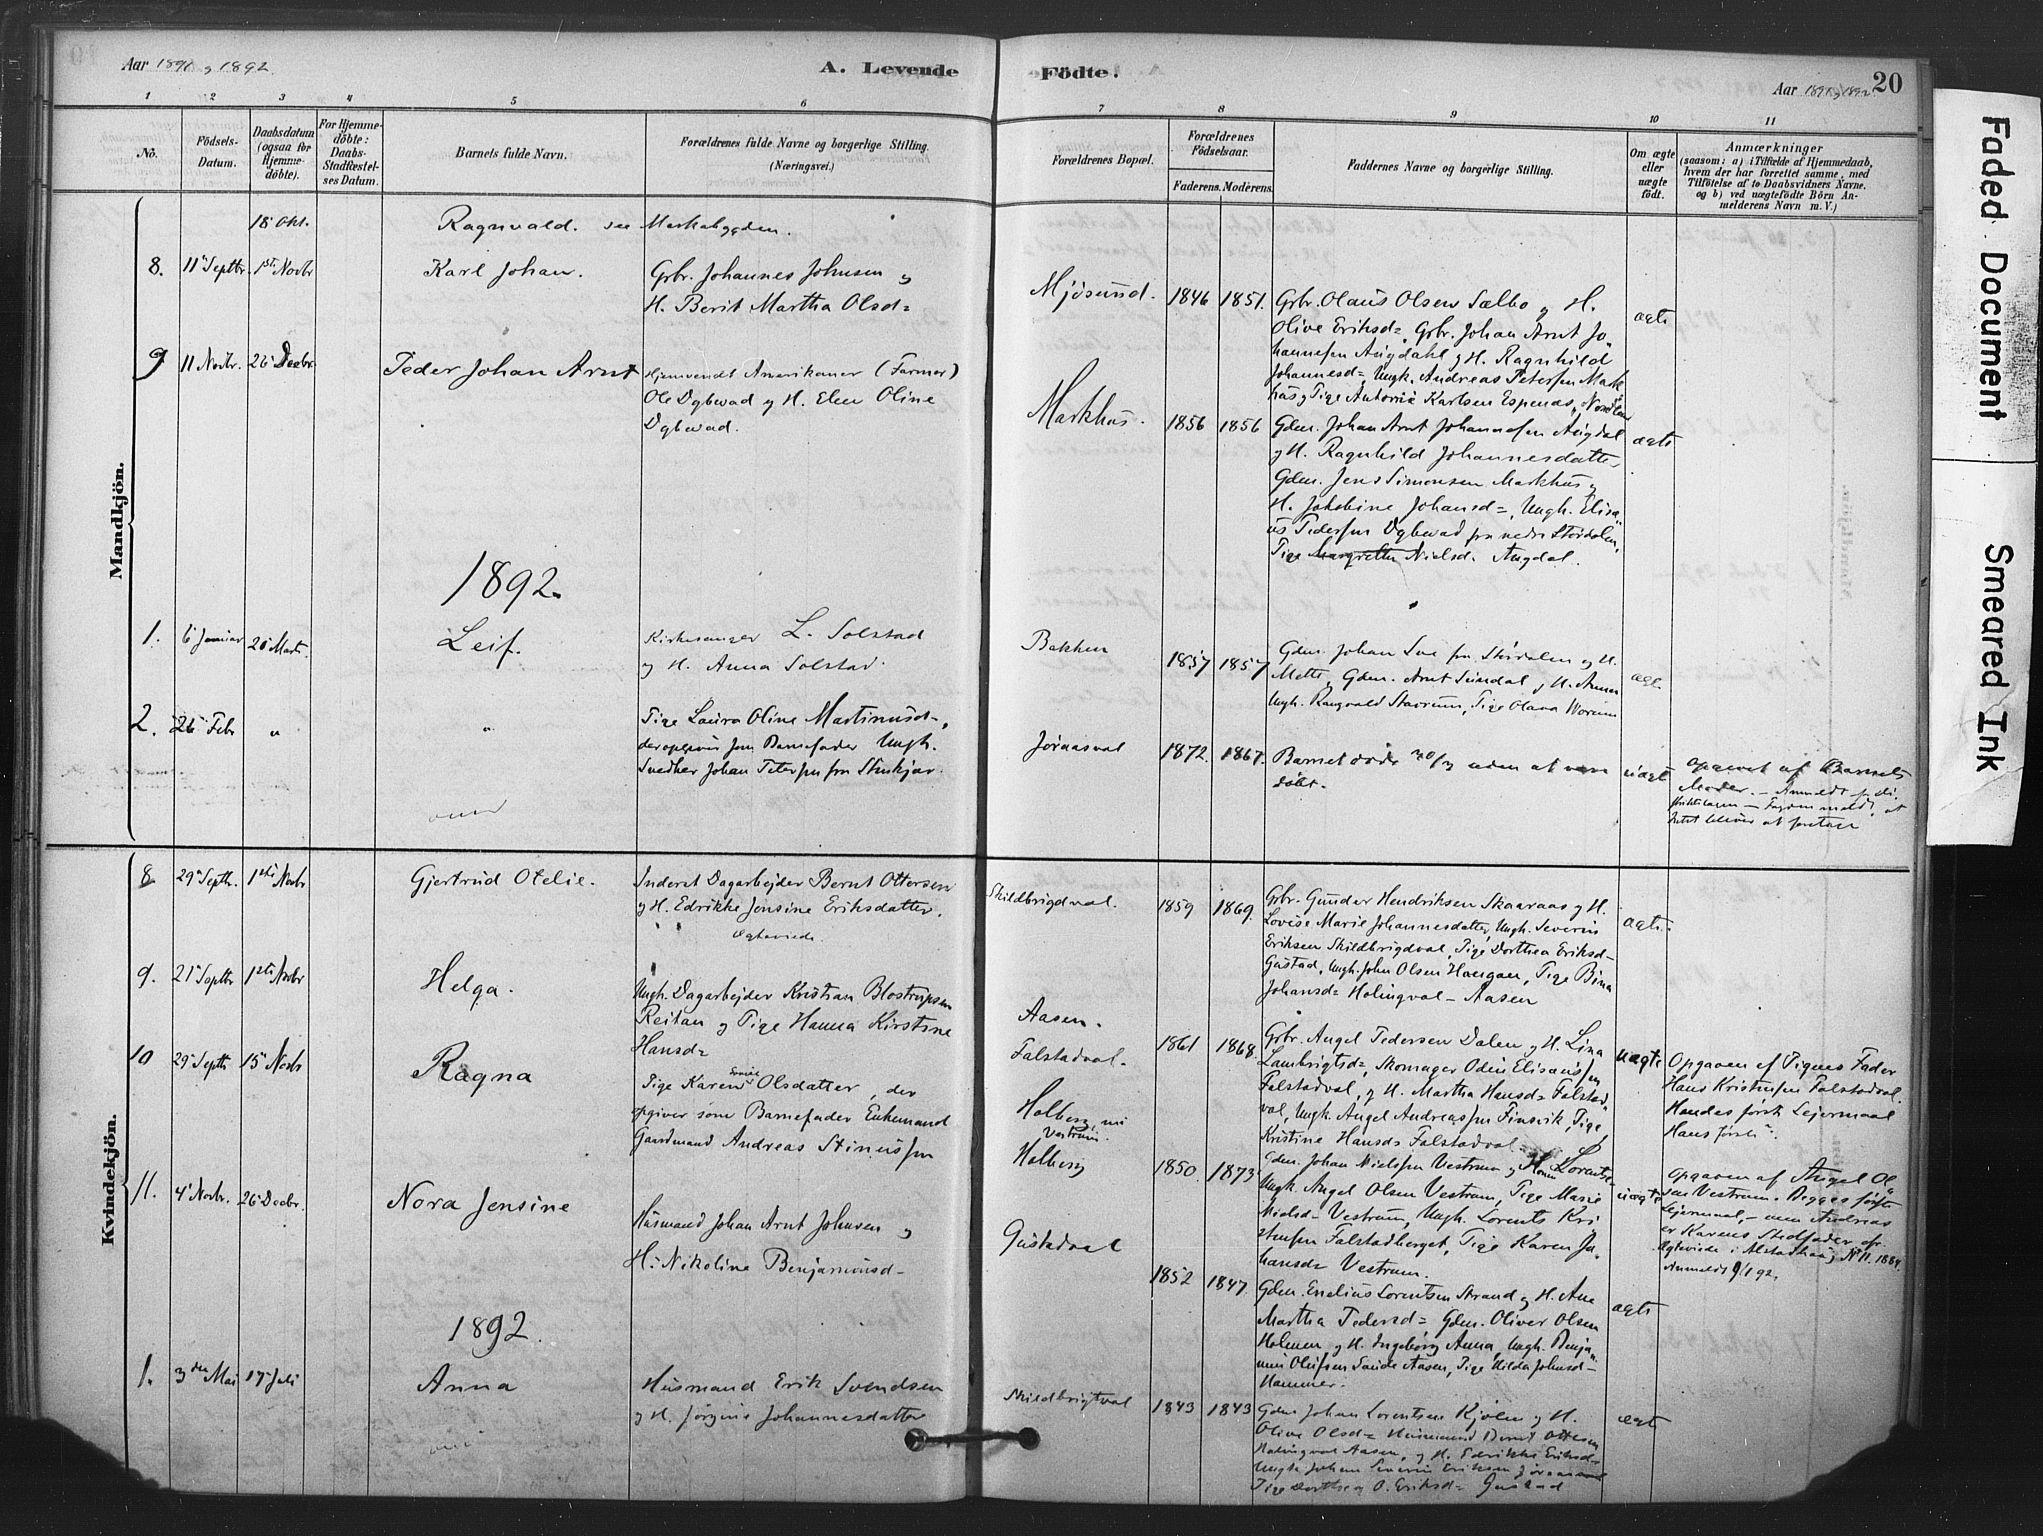 Aar 1891 og 1892
A. Levende
Födte.
Aar 1891 og 1892
20
1 2 3 4 5 6 7 8 9 10 11
No.
Födsels-
Datum.
Daabsdatum
(ogsaa for
Hjemme-
döbte).
For Hjemme-
döbte:
Daabs-
Stadfæstel-
ses Datum.
Barnets fulde Navn.
Forældrenes fulde Navne og borgerlige Stilling.
(Næringsvei.)
Forældrenes Bopæl.
Forældrenes
Födselsaar.
Faderens. Moderens.
Faddernes Navne og borgerlige Stilling.
Om ægte
eller
uægte
födt.
Anmærkninger
(saasom: a) i Tilfælde af Hjemmedaab,
hvem der har forrettet samme, med
Tilföielse af to Daabsvidners Navne.
og b) ved uægtefödte Börn An-
melderens Navn m. V.)
Mandkjön.
18 Okt.
Ragnvald. see Markabygden.
8. 11 Septbr 1ste Novbr
Karl Johan.
Grbr. Johannes Johnsen og
H. Berit Martha Olsd=
Mjösund.
1846 1851.
Grbr. Olaus Olsen Sælbo og H.
Olive Eriksd= Grbr. Johan Arnt Jo
hannesen Augdahl og H. Ragnhild
Johannesd=, Ungk. Andreas Petersen Mark
hus og Pige Karlsen Espenæs
ægte
9 11 Novbr. 26 Decbr.
Peder Johan Arnt
Hjemvendt Amerikaner (Farmer)
Ole Dybwad og H. Elen Oline
Dybwad.
Markhus.
1856 1856
Gdm. Johan Arnt Johannesen Augdal
og H. Ragnhild Johannesdatter
Gdm. Jens Simonsen Markhus og
H. Jakobine Johansd=, Ungk. Elisæ
us Pedersen Dybwad fra nedre Stördalen,
Pige Margrethe Nielsd. Augdal.
ægte
1892.
1. 6 Januar 20 Marts.
Leif.
Kirkesanger L. Solstad
og H. Anna Solstad.
Bakken
1857 1857
Gdm. Johan Sve fra Stördalen og H.
Mette, Gdm. Arnt Sundal og H. Anna
Ungk. Ragnvald Stavrum, Pige Olava Worum
ægte
2. 26 Febr " "
Pige Laura Oline Martinusd=,
der opgiver som Barnefader Ungk.
Snedker Johan Petersen fra Stenkjær.
Jöraasval
1872. 1867.
Barnet döde uden at være
döbt.
uægte
opgivet af Barnets
Moder. — Anmeldt
Kvindekjön.
8 29 Septbr. 1ste Novbr
Gjertrud Otelie.
Inderst Dagarbejder Bernt Ottersen
og H. Edrikke Jensine Eriksdatter.
Ægteviede.
Skildbrigdval.
1859 1869.
Grbr. Gunder Hendriksen Skaaraas og H.
Lovise Marie Johannesdatter, Ungk. Severin
Eriksen Skildbrigdval, Pige Dorthea Eriksd=
Gustad, Ungk. John Olsen Haugan, Pige Bina
Johansd= Holingval — Aasen
ægte.
9. 21 Septbr 1ste Novbr
Helga.
Ungk. Dagarbejder Kristian Blostrupsen
Reitan og Pige Hanna Kirstine
Hansd=
Aasen.
Falstadval.
1861 1868.
Grbr. Angel Pedersen Dalen og H. Lina
Lambrigtsd=, Skomager Odin Elisæussen
Falstadval, og H. Martha Hansd= Falstad
val, Ungk. Angel Andreassen Finsvik, Pige
Kristine Hansds Falstadval
uægte
Opgaven af Pigens Fader
Hans Kristensen Falstadval.
Hendes første Lejermaal
Hans første.
10 29 Septbr 15 Novbr
Ragna
Pige Karen Olsdatter, der
opgiver som Barnefader Enkemand
Gaardmand Andreas Stinussen
Holberg, nu
Vestrum.
Holberg
1850. 1873
Gdm. Johan Nielssen Vestrum og Lorentse
Ungk. Angel Olsen Vestrum, Pige Marie
Nielsd= Vestrum, Ungk. Lorents Kri
stensen Falstadberget, Pige Karen Jo
hansd= Vestrum.
uægte
opgaven af Angel Ol
sen Vestrum. Begges første
Lejermaal, — men Andreas
er Karens Stedfader cfr.
Ægteviede i Alstadhaug No 11. 1884.
Anmeldt 9/1 92.
11. 4 Novbr. 26 Decbr.
Nora Jensine
Husmand Johan Arnt Johnsen og
H. Nikoline Benjaminsd=
Gustadval
1852 1847.
Gdm. Enelius Lorentsen Strand og H. Ane
Martha Pedersd= Gdm. Oliver Olsen
Holmen og H. Ingeborg Anna, Ungk. Benja
min Olufsen Sande Aasen, Pige Hilda Johnsd=
Hammer.
ægte
1892.
1. 3die Mai 17 Juli
Anna
Husmand Erik Svendsen
og H. Jörgine Johannesdatter
Skildbrigtval
1843 1843
Gdm. Johan Lorentsen Kjölen og H.
Olive Olsd= Husmand Bernt Ottesen
Holingval Aasen, og H. Edrikke Eriksd=
Ungk. Johan Severin Eriksen Jöraasval
Pige Dorthea O. Eriksd= Gustad
ægte
Faded Document
Smeared Ink